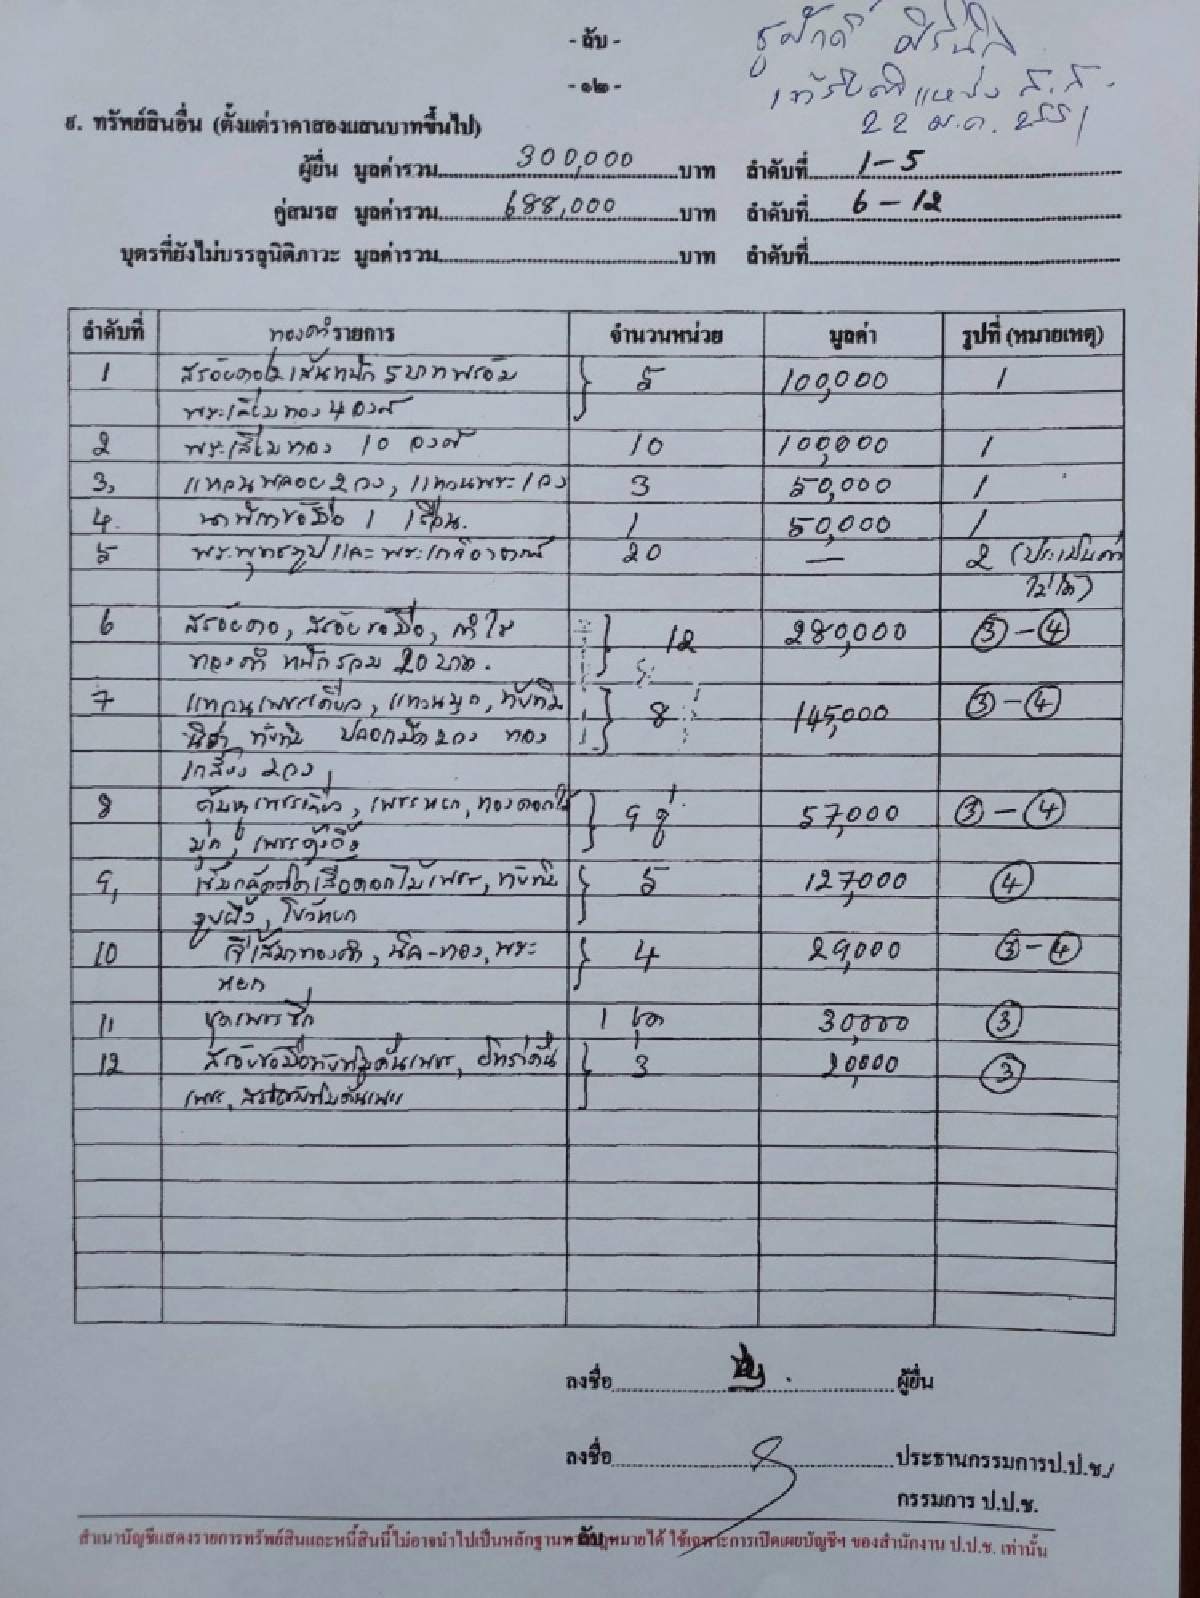 - ลับ -
- ๑๒ -
ชูศักดิ์ ศิรินิล
เข้ารับตำแหน่ง ส.ส.
22 ม.ค. 2551
๙. ทรัพย์สินอื่น (ตั้งแต่ราคาสองแสนบาทขึ้นไป)
ผู้ยื่น มูลค่ารวม 300,000 บาท ลำดับที่ 1-5
คู่สมรส มูลค่ารวม 688,000 บาท ลำดับที่ 6-12
บุตรที่ยังไม่บรรลุนิติภาวะ มูลค่ารวม บาท ลำดับที่
ลำดับที่ ทองคำ รายการ จำนวนหน่วย มูลค่า รูปที่ (หมายเหตุ)
1 สร้อยคอ 1 เส้นหนัก 5 บาทพร้อม 5 100,000 1
พระเลี่ยมทอง 4 องค์
2 พระเลี่ยมทอง 10 องค์ 10 100,000 1
3. แหวนพลอย 2 วง, แหวนพระ 1 วง 3 50,000 1
4. นาฬิกาข้อมือ 1 เรือน. 1 50,000 1
5 พระพุทธรูปและพระเกจิอาจารย์ 20 — 2 (ประเมินค่า
ไม่ได้)
6 สร้อยคอ, สร้อยข้อมือ, กำไล 12 280,000 3-4
ทองคำ หนักรวม 20 บาท.
7 แหวนเพชรเดี่ยว, แหวนมุก, ทับทิม 8 145,000 3-4
ทับทิม ปลอกมีด 2 วง ทอง
เกลี้ยง 2 วง
8 ตุ้มหูเพชรเดี่ยว, เพชรหยก, ทองดอกไม้ 9 คู่ 57,000 3-4
มุก, เพชรตุ้งติ้ง
9. เข็มกลัดติดเสื้อดอกไม้เพชร, ทับทิม 5 127,000 4
รูปผึ้ง, โบว์หยก
10 จี้เสมาทองคำ, นาค-ทอง, พระ 4 29,000 3-4
หยก
11 ชุดเพชรซีก 1 ชุด 30,000 3
12 สร้อยข้อมือทับทิมคั่นเพชร, คั่น 3 20,000 3
เพชร, สร้อยทับทิมคั่นเพชร
ลงชื่อ ผู้ยื่น
ลงชื่อ ประธานกรรมการป.ป.ช./
กรรมการ ป.ป.ช.
ลับ
สำเนาบัญชีแสดงรายการทรัพย์สินและหนี้สินนี้ไม่อาจนำไปเป็นหลักฐานทางกฎหมายได้ ใช้เฉพาะการเปิดเผยบัญชีฯ ของสำนักงาน ป.ป.ช. เท่านั้น